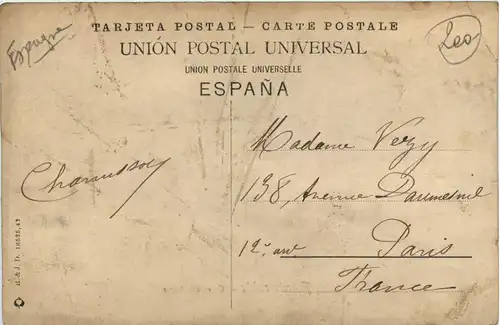 Espagne
TARJETA POSTAL — CARTE POSTALE
UNIÓN POSTAL UNIVERSAL
UNION POSTALE UNIVERSELLE
ESPAÑA
Leo
Madame Vezy
198, Avenue Daumesnil
12e arr Paris
France